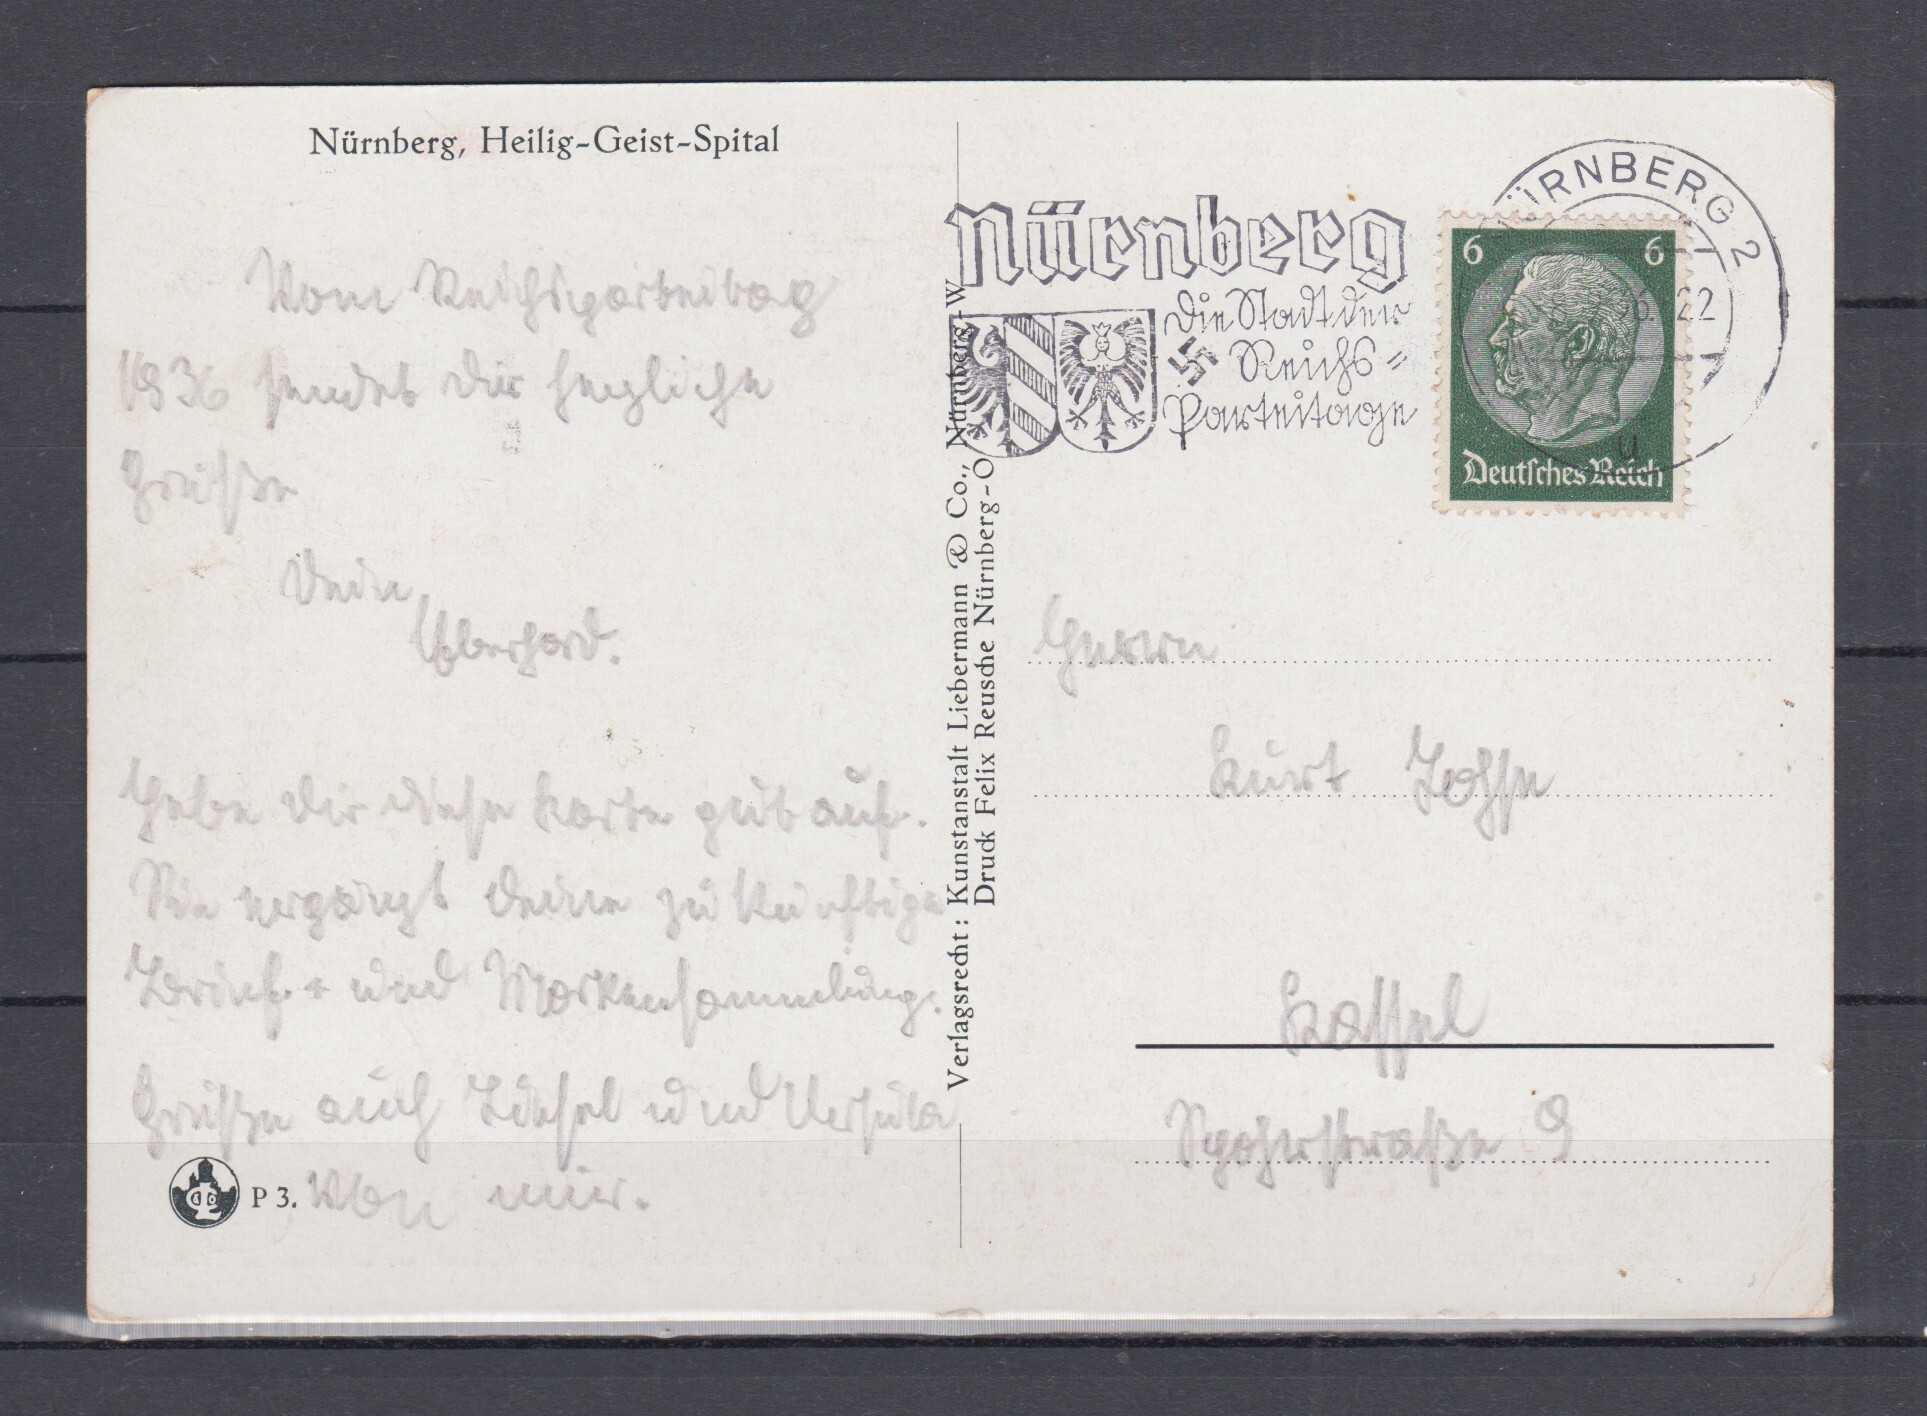 Nürnberg, Heilig-Geist-Spital
Vom Reichsparteitag
1936 sendet Dir herzliche
Grüße
Dein
Eberhard.
Hebe Dir diese Karte gut auf.
Sie ergänzt Deine zukünftige
Brief- und Markensammlung.
Grüße auch Liesel und Ursula
von mir.
P 3.
Verlagsrecht: Kunstanstalt Liebermann & Co., Nürnberg-W
Druck Felix Reusche Nürnberg-O
Nürnberg
Die Stadt der
Reichs=
Parteitage
NÜRNBERG 2
22
u
6 6
Deutsches Reich
Herrn
Kurt Lohse
Kassel
Spohrstraße 9